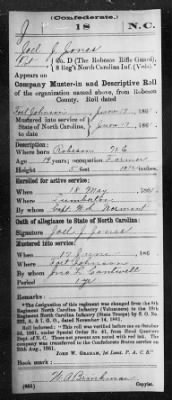 (Confederate.)
J 18 N.C.
Joel J Jones
Pvt., Co. D (The Robeson Rifle Guard),
8 Reg't North Carolina Inf. (Vols.)
Appears on
Company Muster-in and Descriptive Roll
of the organization named above, from Robeson
County. Roll dated
Fort Johnson June 17, 186
Mustered into service of
State of North Carolina, June 17, 186
Description:
Where born Robeson N C
Age 19 years; occupation Farmer
Height 5 feet inches.
Enrolled for active service:
When 18 May, 186
Where Lumberton
By whom Capt. W. S. Norment
Oath of allegiance to State of North Carolina:
Signature Joel J Jones
Mustered into service:
When 17 June, 186
Where Fort Johnson
By whom Jno. L. Cantwell
Period 1 yr
Remarks:
*The designation of this regiment was changed from the 8th
Regiment North Carolina Infantry (Volunteers) to the 18th
Regiment North Carolina Infantry (State Troops) by S. O. No.
222, A. & I. G. O., dated November 14, 1861.
Roll indorsed: "This roll was verified before me on October
JOHN W. GRAHAM, 1st Lieut. P. A. C. S."
Copyist.